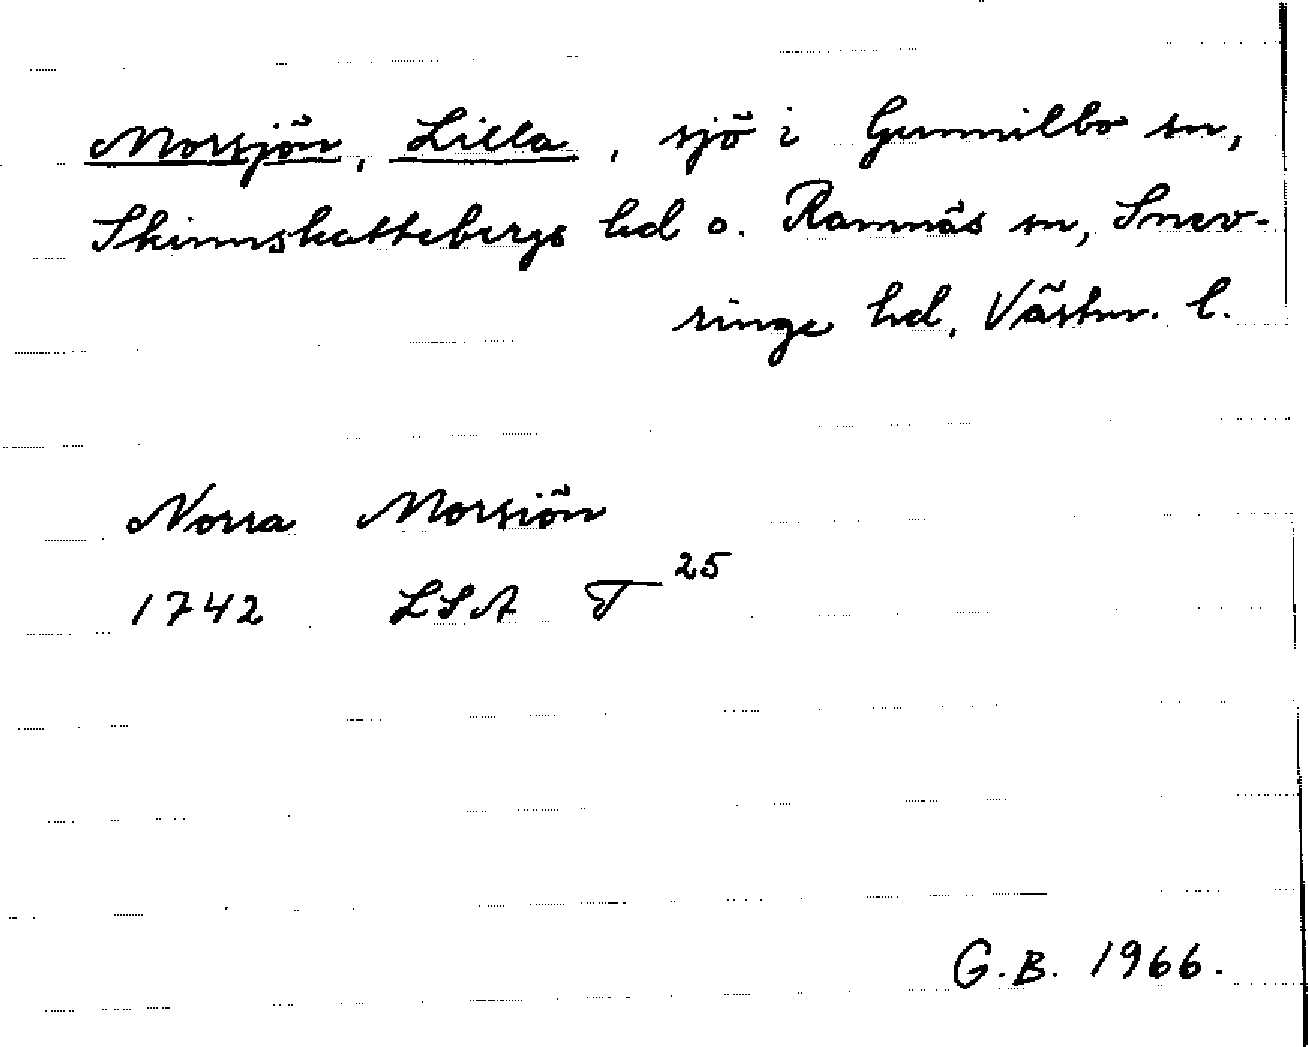 Morsjön, Lilla, sjö i Gunnilbo sn,
Skinnskattebergs hd o. Ramnäs sn, Snev-
ringe hd, Västm. l.
Norra Morsiön
1742 LSA T 25
G.B. 1966.